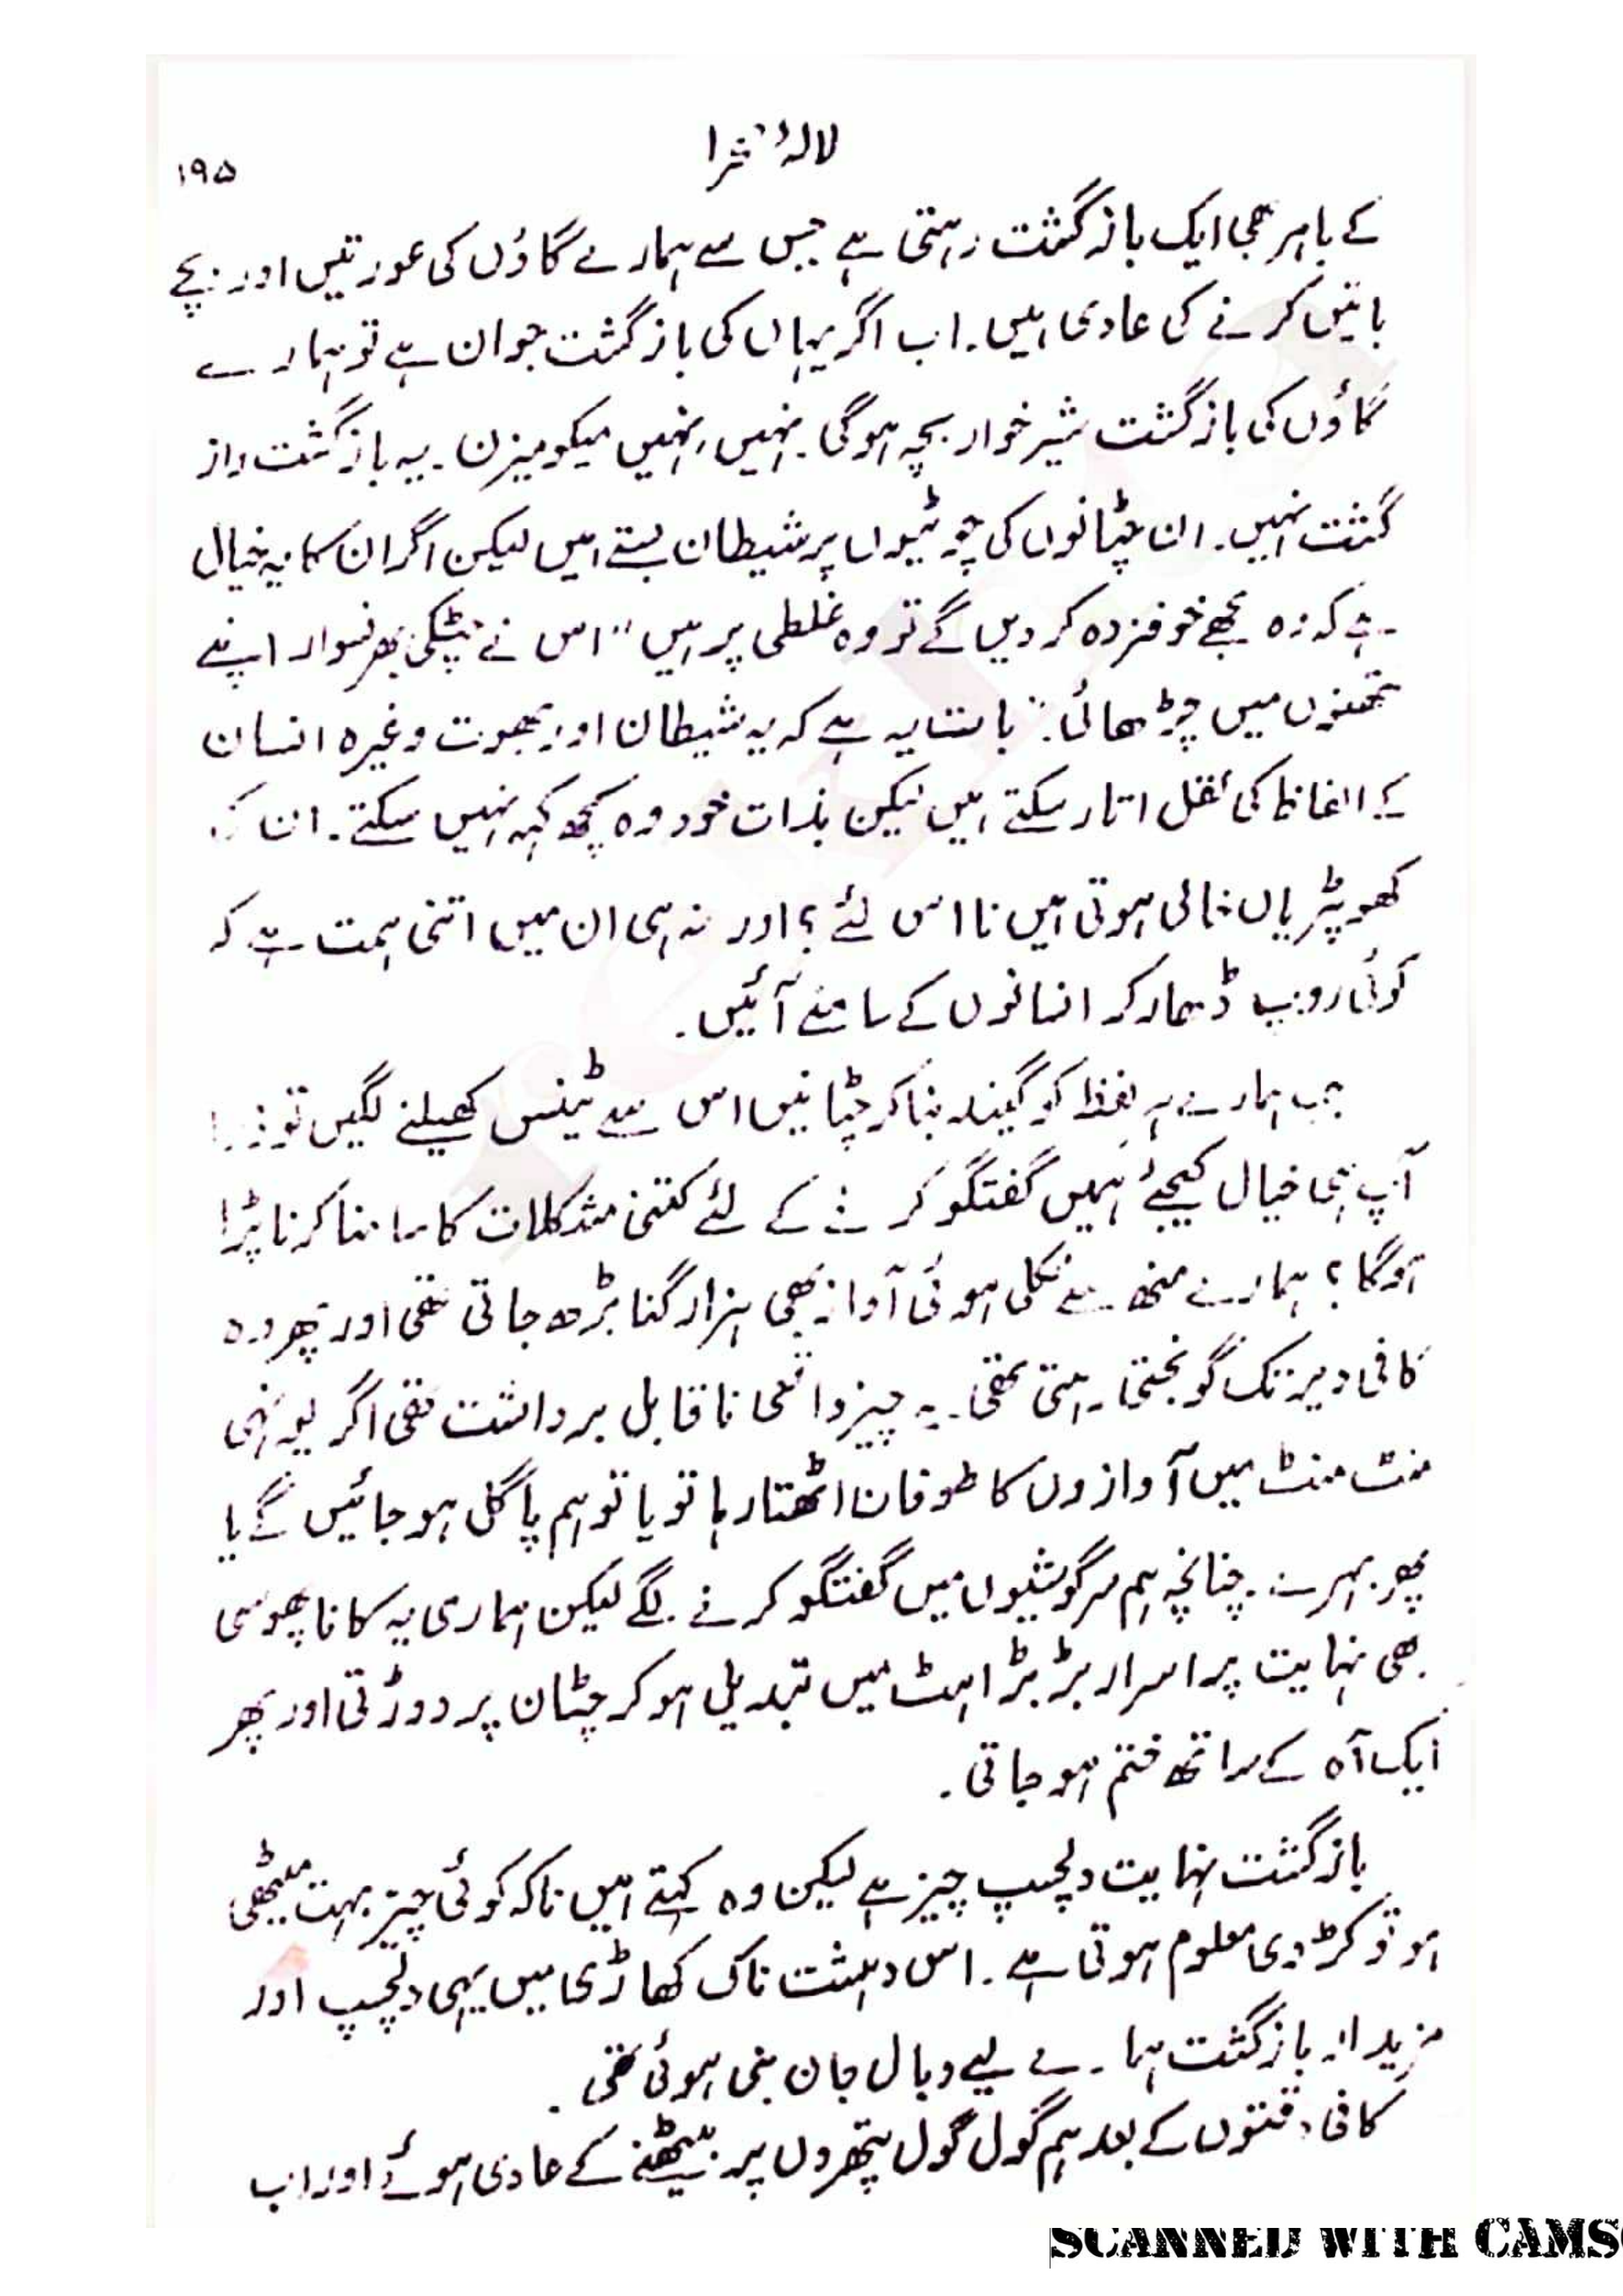 لالۂ صحرا
۱۹۵
کے باہر بھی ایک بازگشت رہتی ہے جس سے ہمارے گاؤں کی عورتیں اور بچے
باتیں کرنے کی عادی ہیں۔ اب اگر یہاں کی بازگشت جوان ہے تو ہمارے
گاؤں کی بازگشت شیرخوار بچہ ہوگی۔ نہیں، نہیں میکومیزن۔ یہ بازگشت واز
گشت نہیں۔ ان چٹانوں کی چوٹیوں پر شیطان بستے ہیں لیکن اگر ان کا یہ خیال
ہے کہ وہ مجھے خوفزدہ کر دیں گے تو وہ غلطی پر ہیں" اس نے چٹکی بھر نسوار اپنے
نتھنوں میں چڑھائی۔ "بات یہ ہے کہ یہ شیطان اور بھوت وغیرہ انسان
کے الفاظ کی نقل اتار سکتے ہیں لیکن بذات خود وہ کچھ کہہ نہیں سکتے۔ ان کی
کھوپڑیاں خالی ہوتی ہیں نا اس لئے؟ اور نہ ہی ان میں اتنی ہمت ہے کہ
کوئی روپ دھار کر انسانوں کے سامنے آئیں۔
جب ہمارے ہر لفظ کو گیند بنا کر چٹانیں اس سے ٹینس کھیلنے لگیں تو ذرا
آپ ہی خیال کیجئے ہمیں گفتگو کرنے کے لئے کتنی مشکلات کا سامنا کرنا پڑا
ہوگا؟ ہمارے منھ سے نکلی ہوئی آواز بھی ہزار گنا بڑھ جاتی تھی اور پھر وہ
کافی دیر تک گونجتی رہتی تھی۔ یہ چیز واقعی ناقابل برداشت تھی اگر یونہی
منٹ منٹ میں آوازوں کا طوفان اٹھتا رہا تو یا تو ہم پاگل ہو جائیں گے یا
پھر بہرے۔ چنانچہ ہم سرگوشیوں میں گفتگو کرنے لگے لیکن ہماری یہ کانا پھوسی
بھی نہایت پراسرار بڑبڑاہٹ میں تبدیل ہو کر چٹان پر دوڑتی اور پھر
ایک آہ کے ساتھ ختم ہو جاتی۔
بازگشت نہایت دلچسپ چیز ہے لیکن وہ کہتے ہیں ناکہ کوئی چیز بہت میٹھی
ہو تو کڑوی معلوم ہوتی ہے۔ اس دہشت ناک کھاڑی میں یہی دلچسپ اور
مزیدار بازگشت ہمارے لیے وبال جان بنی ہوئی تھی۔
کافی دقتوں کے بعد ہم گول گول پتھروں پر بیٹھنے کے عادی ہوئے اور اب
SCANNED WITH CAMS